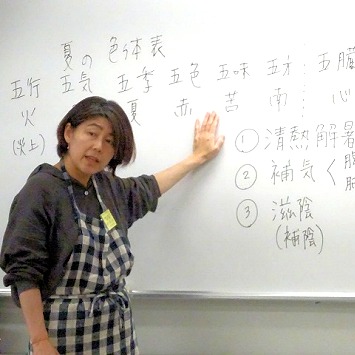 夏の 色体表
五行 五気 五季 五色 五味 五方 五臓
火 夏 赤 苦 南 心
(炎上)
① 清熱解暑
② 補気く
③ 滋陰
(補陰)